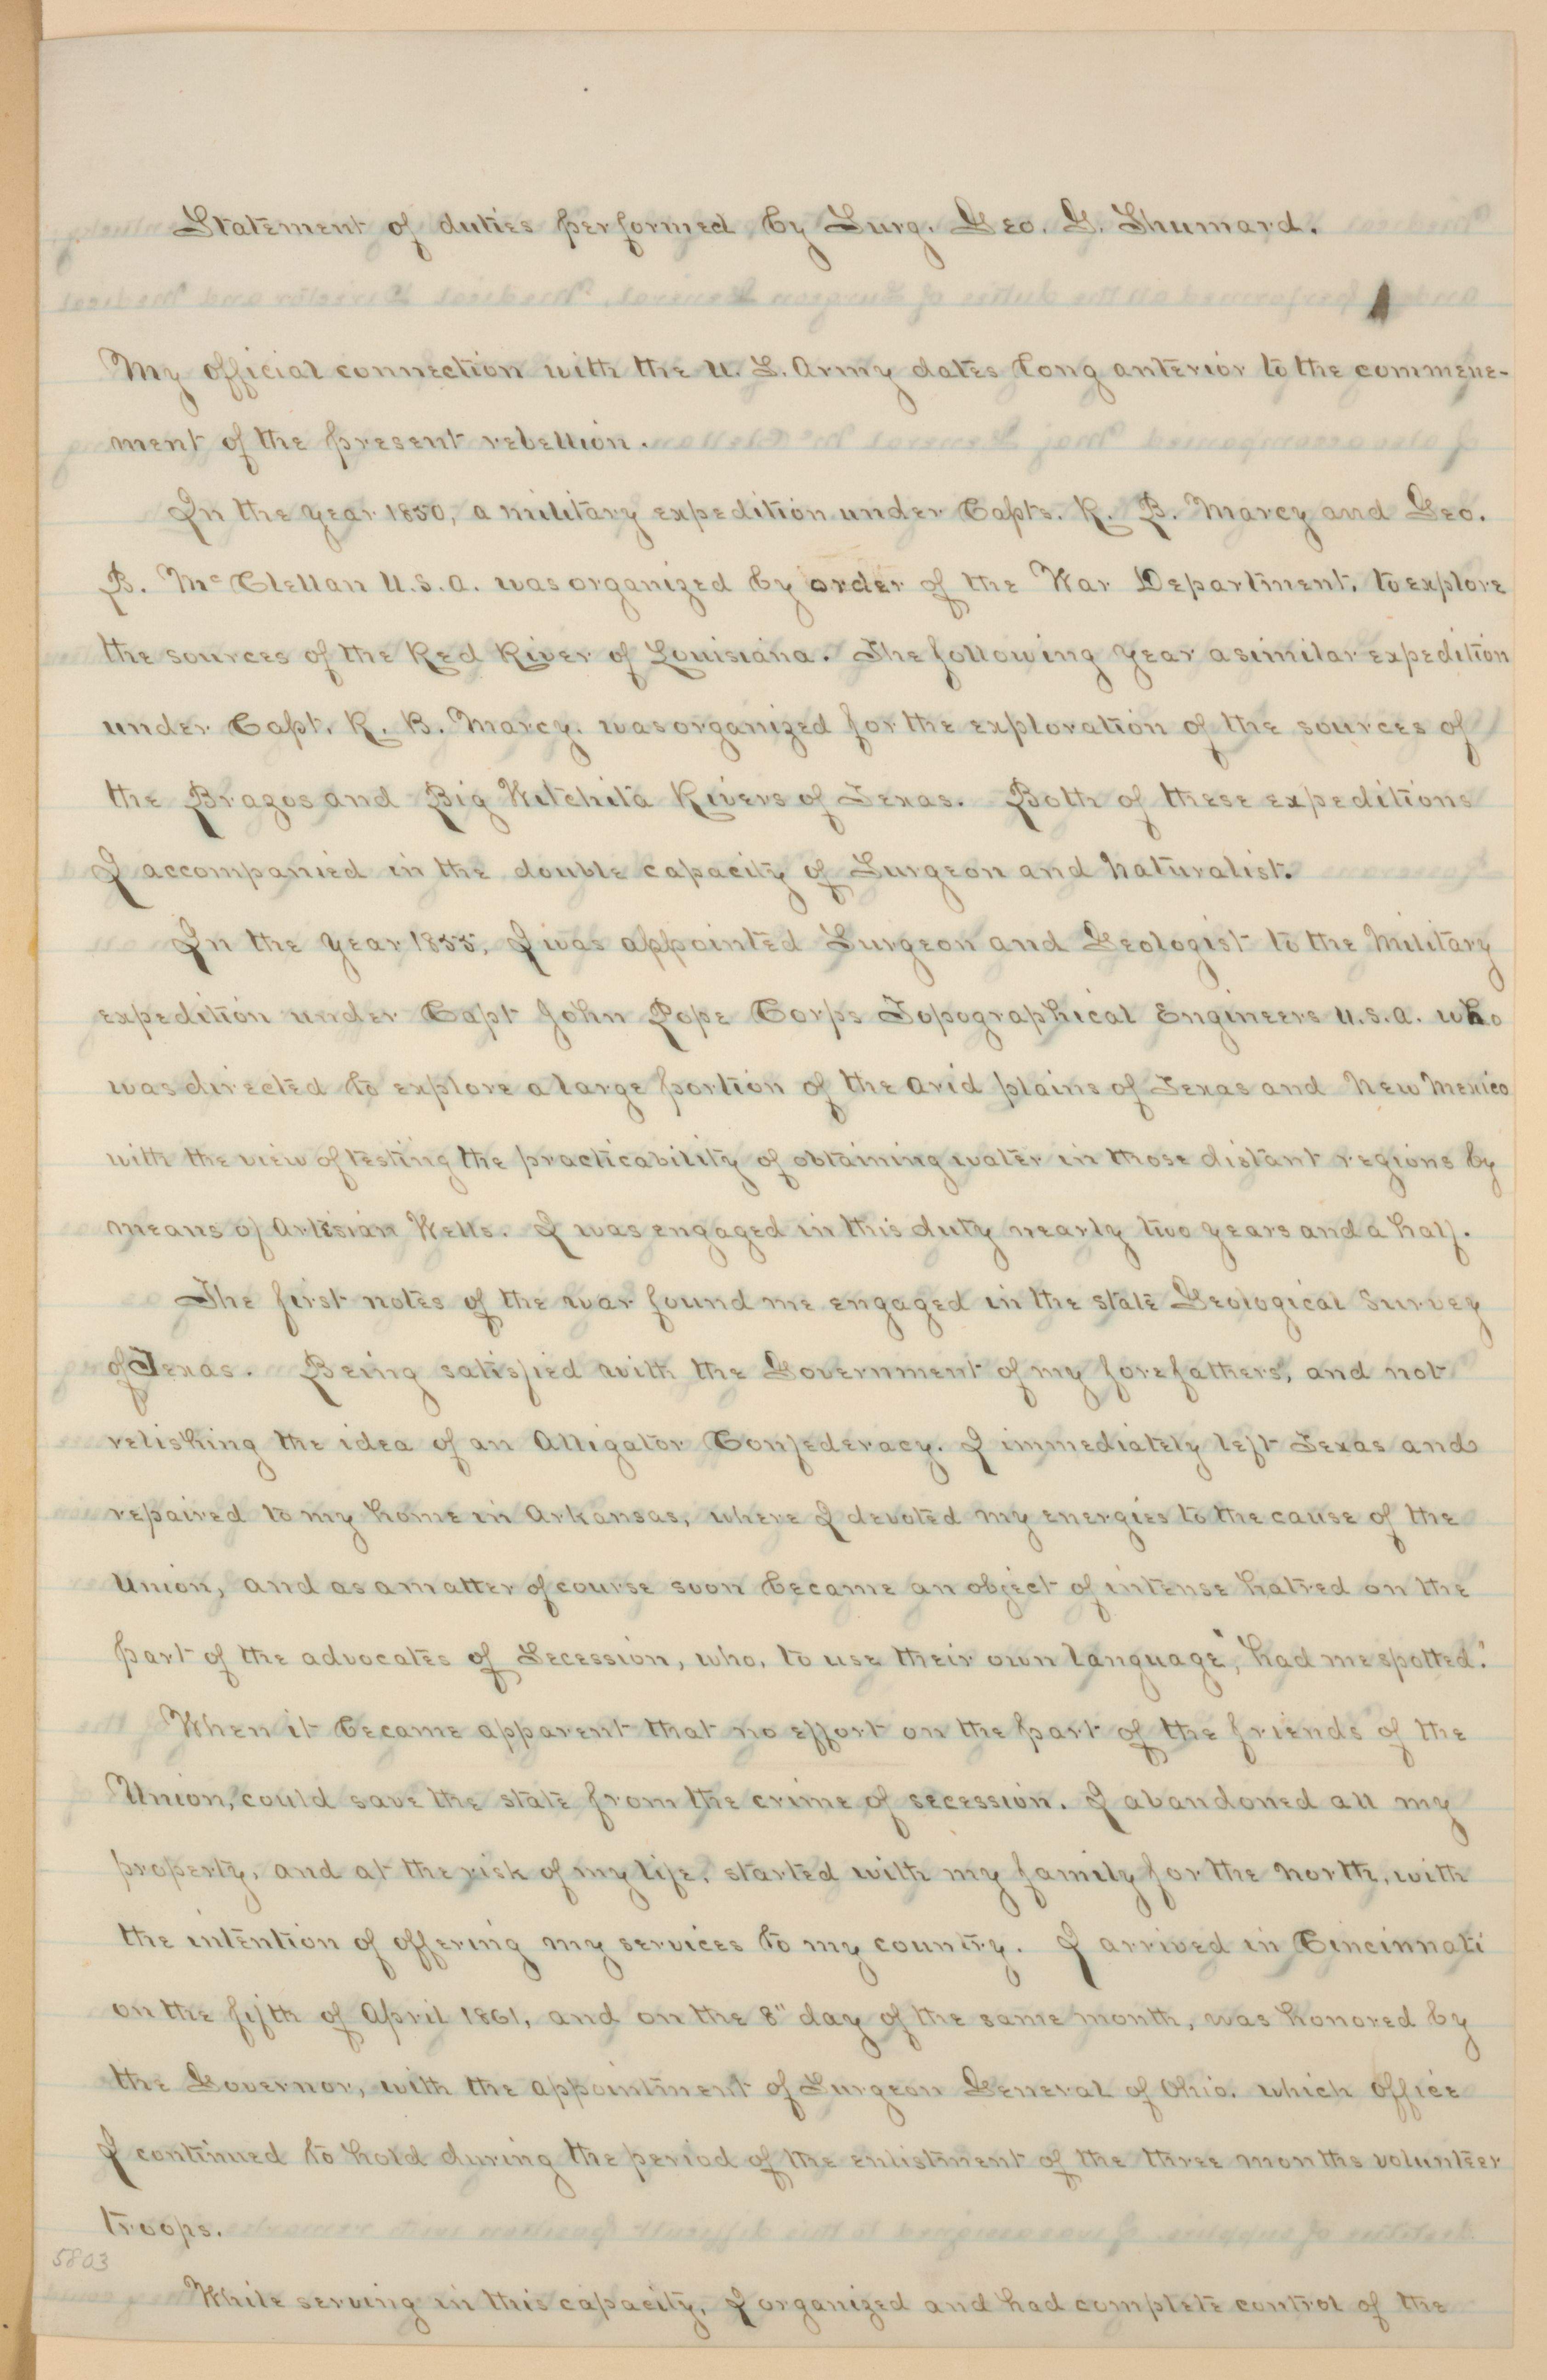 Statement of duties performed by Surg. Geo. G. Shumard.
My official connection with the U. S. Army dates long anterior to the commence-
ment of the present rebellion.
In the year 1850, a military expedition under Capts. R. B. Marcy and Geo.
B. McClellan U.S.A. was organized by order of the War Department, to explore
the sources of the Red River of Louisiana. The following year a similar expedition
under Capt. R. B. Marcy, was organized for the exploration of the sources of
the Brazos and Big Witchita Rivers of Texas. Both of these expeditions
I accompanied in the double capacity of Surgeon and Naturalist.
In the year 1855, I was appointed Surgeon and Geologist to the Military
expedition under Capt John Pope Corps Topographical Engineers U.S.A. who
was directed to explore a large portion of the arid plains of Texas and New Mexico
with the view of testing the practicability of obtaining water in those distant regions by
means of Artisian Wells. I was engaged in this duty nearly two years and a half.
The first notes of the war found me engaged in the state Geological Survey
of Texas. Being satisfied with the Government of my forefathers, and not
relishing the idea of an Alligator Confederacy. I immediately left Texas and
repaired to my home in Arkansas, where I devoted my energies to the cause of the
Union, and as a matter of course soon became an object of intense hatred on the
part of the advocates of Secession, who, to use their own language, "had me spotted."
When it became apparent that no effort on the part of the friends of the
Union, could save the state from the crime of secession. I abandoned all my
property, and at the risk of my life, started with my family for the North, with
the intention of offering my services to my country. I arrived in Cincinnati
on the fifth of April 1861, and on the 8" day of the same month, was honored by
the Governor, with the appointment of Surgeon General of Ohio, which office
I continued to hold during the period of the enlistment of the three months volunteer
troops.
5803
While serving in this capacity, I organized and had complete control of the